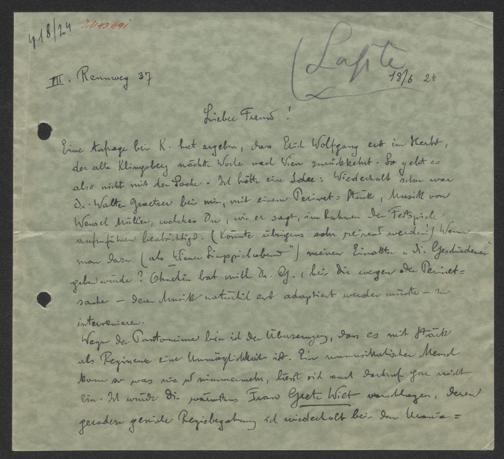 418/24
III. Rennweg 37
18/6 24
Lieber Freund!
Eine Anfrage bei K. hat ergeben, dass Erich Wolfgang erst im Herbst,
der alte Klingsberg nächste Woche nach Wien zurückkehrt. So geht es
also nicht mit der Sache. Ich hätte eine Idee: Wiederholt schon war
Dr. Walter bei mir, mit einem Perinet-Stück, Musik von
Wenzel Müller, welches Du, wie er sagt, im Rahmen der Festspiele
aufzuführen beabsichtigst. (Könnte übrigens sehr reizend werden!) Wenn
man dazu (als "Wiener ") meinen Einakter "
geben würde? Ohnehin bat mich Dr. G., bei Dir wegen der Perinet=
sache – deren Musik natürlich erst adaptiert werden müsste – zu
intervenieren.
Wegen der Pantomime bin ich der Überzeugung, dass es mit
als Regisseur eine Unmöglichkeit ist. Ein unmusikalischer Mensch
kann so was nie u nimmermehr, lässt sich auch darauf gar nicht
ein. Ich würde Dir wärmstens Frau Grete Wiet vorschlagen, deren
geradezu geniale Regiebegabung ich wiederholt bei den Maria=